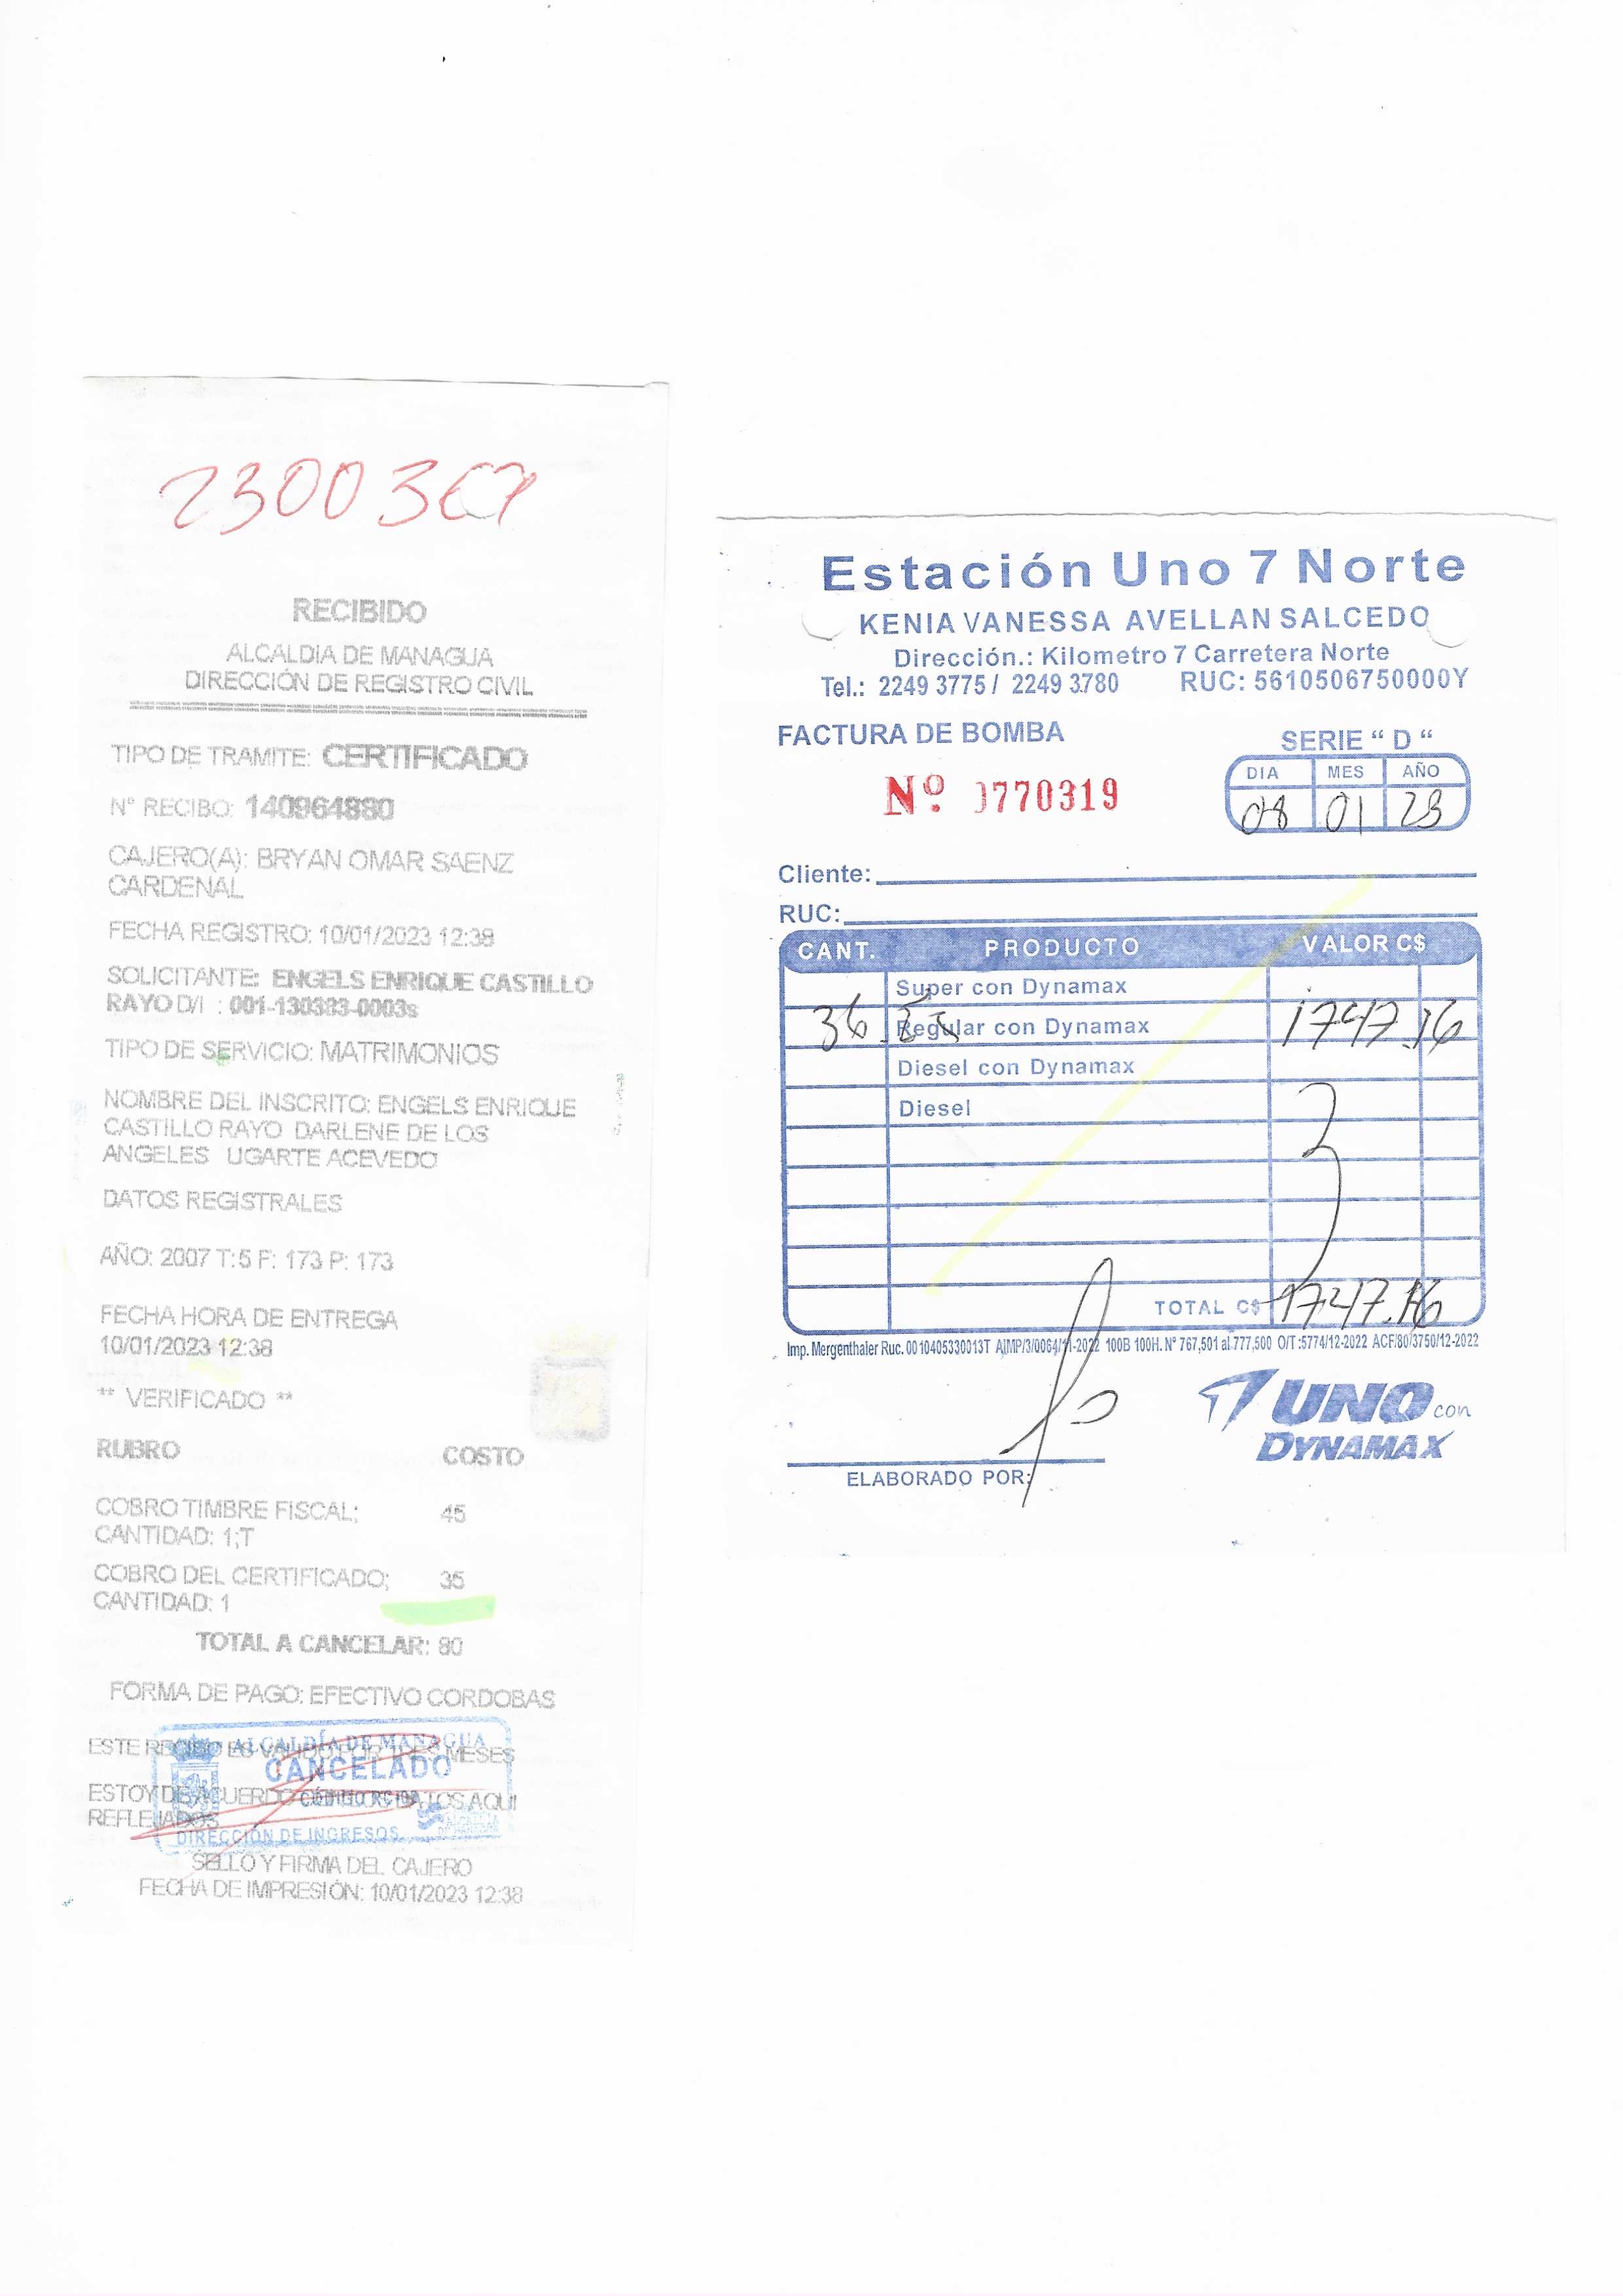 RECIBIDO
ALCALDIA DE MANAGUA
DIRECCIÓN DE REGISTRO CIVIL
TIPO DE TRAMITE: CERTIFICADO
N° RECIBO: 140964880
CAJERO(A): BRYAN OMAR SAENZ
CARDENAL
FECHA REGISTRO: 10/01/2023 12:38
SOLICITANTE: ENGELS ENRIQUE CASTILLO
RAYO D/I : 001-130383-0003s
TIPO DE SERVICIO: MATRIMONIOS
NOMBRE DEL INSCRITO: ENGELS ENRIQUE
CASTILLO RAYO DARLENE DE LOS
ANGELES UGARTE ACEVEDO
DATOS REGISTRALES
AÑO: 2007 T:5 F: 173 P: 173
FECHA HORA DE ENTREGA
10/01/2023 12:38
** VERIFICADO **
RUBRO COSTO
COBRO TIMBRE FISCAL; 45
CANTIDAD: 1;T
COBRO DEL CERTIFICADO; 35
CANTIDAD: 1
TOTAL A CANCELAR: 80
FORMA DE PAGO: EFECTIVO CORDOBAS
ESTE RECIBO ES VALIDO POR TRES MESES
ESTOY DE ACUERDO CON LOS DATOS AQUI
REFLEJADOS
ALCALDÍA DE MANAGUA
CANCELADO
DIRECCIÓN DE INGRESOS
SELLO Y FIRMA DEL CAJERO
FECHA DE IMPRESIÓN: 10/01/2023 12:38
Estación Uno 7 Norte
KENIA VANESSA AVELLAN SALCEDO
Dirección.: Kilometro 7 Carretera Norte
Tel.: 2249 3775 / 2249 3780 RUC: 5610506750000Y
FACTURA DE BOMBA
SERIE “ D “
Nº 0770319
DIA MES AÑO
08 01 23
Cliente:
RUC:
CANT. PRODUCTO VALOR C$
Super con Dynamax
36. Regular con Dynamax 1747.16
Diesel con Dynamax
Diesel
TOTAL C$ 1747.16
Imp. Mergenthaler Ruc. 0010405330013T AIMP/3/0064/11-2022 100B 100H. Nº 767,501 al 777,500 O/T :5774/12-2022 ACF/80/3750/12-2022
UNO con
DYNAMAX
ELABORADO POR: